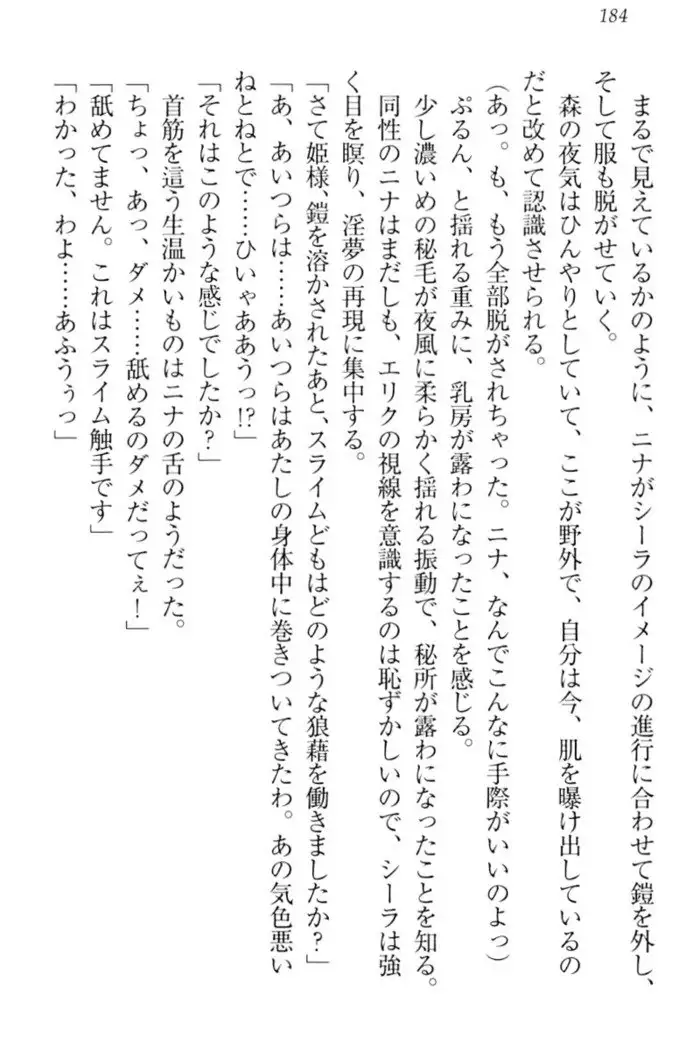 184
まるで見えているかのように、ニナがシーラのイメージの進行に合わせて鎧を外し、
そして服も脱がせていく。
森の夜気はひんやりとしていて、ここが野外で、自分は今、肌を曝け出しているの
だと改めて認識させられる。
(あっ。も、もう全部脱がされちゃった。ニナ、なんでこんなに手際がいいのよっ)
ぷるん、と揺れる重みに、乳房が露わになったことを感じる。
少し濃いめの秘毛が夜風に柔らかく揺れる振動で、秘所が露わになったことを知る。
同性のニナはまだしも、エリクの視線を意識するのは恥ずかしいので、シーラは強
く目を瞑り、淫夢の再現に集中する。
「さて姫様、鎧を溶かされたあと、スライムどもはどのような狼藉を働きましたか?」
「あ、あいつらは……あいつらはあたしの身体中に巻きついてきたわ。あの気色悪い
ねとねとで……ひいゃああうっ!?」
「それはこのような感じでしたか?」
首筋を這う生温かいものはニナの舌のようだった。
「ちょっ、あっ、ダメ……舐めるのダメだってぇ!」
「舐めてません。これはスライム触手です」
「わかった、わよ……あふうぅっ」